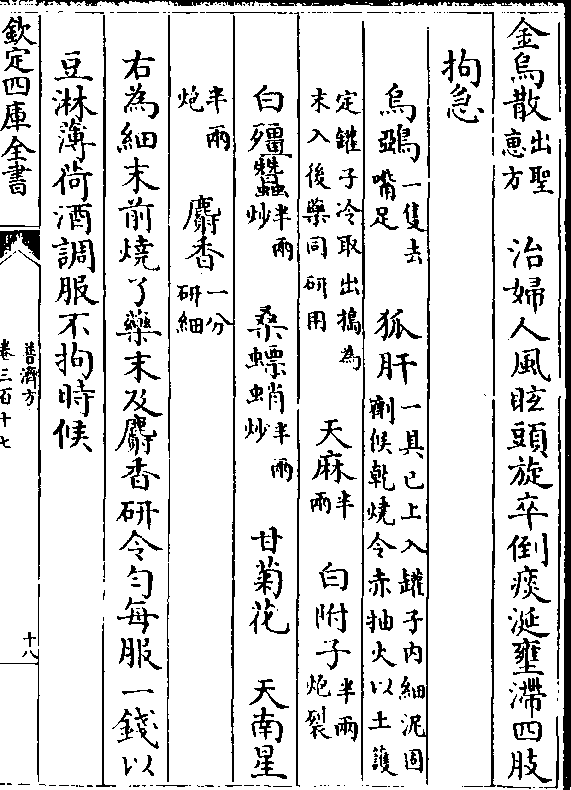 金烏散出聖惠方　治婦人風眩頭旋卒倒痰涎壅滯四肢
拘急
烏鵶一隻去嘴足　狐肝一具已上入罐子内細泥固劑候乾燒令赤抽火以土護
定罐子冷取出搗為末入後藥同研用　天麻半兩　白附子半兩炮裂
白殭蠶半兩炒　桑螵蛸半兩炒　甘菊花　天南星
半兩炮　麝香一分研細
右為細末前燒了藥末及麝香研令勻每服一錢以
豆淋薄荷酒調服不拘時候
欽定四庫全書
普濟方
卷三百十七
十八